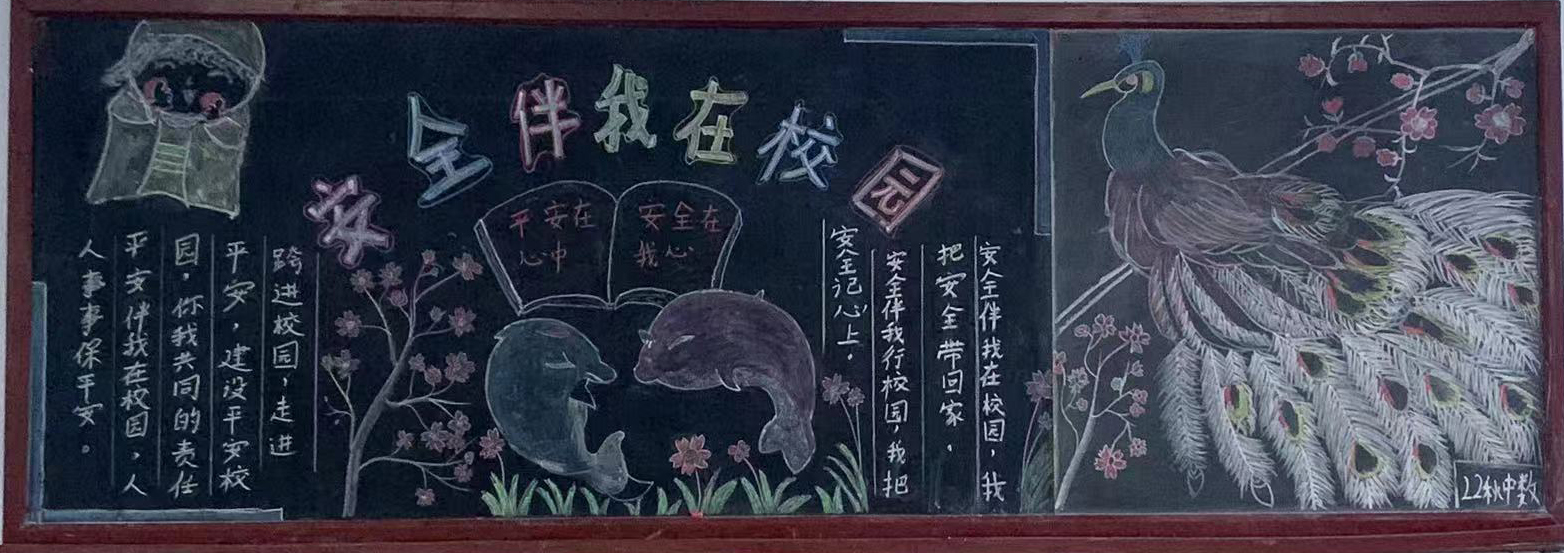 安全伴我在校园
平安在
心中
安全在
我心
跨进校园，走进
平安，建设平安校
园，你我共同的责任
平安伴我在校园，人
人事事保平安。
安全伴我在校园，我
把安全带回家。
安全伴我行校园，我把
安全记心上。
22秋中数